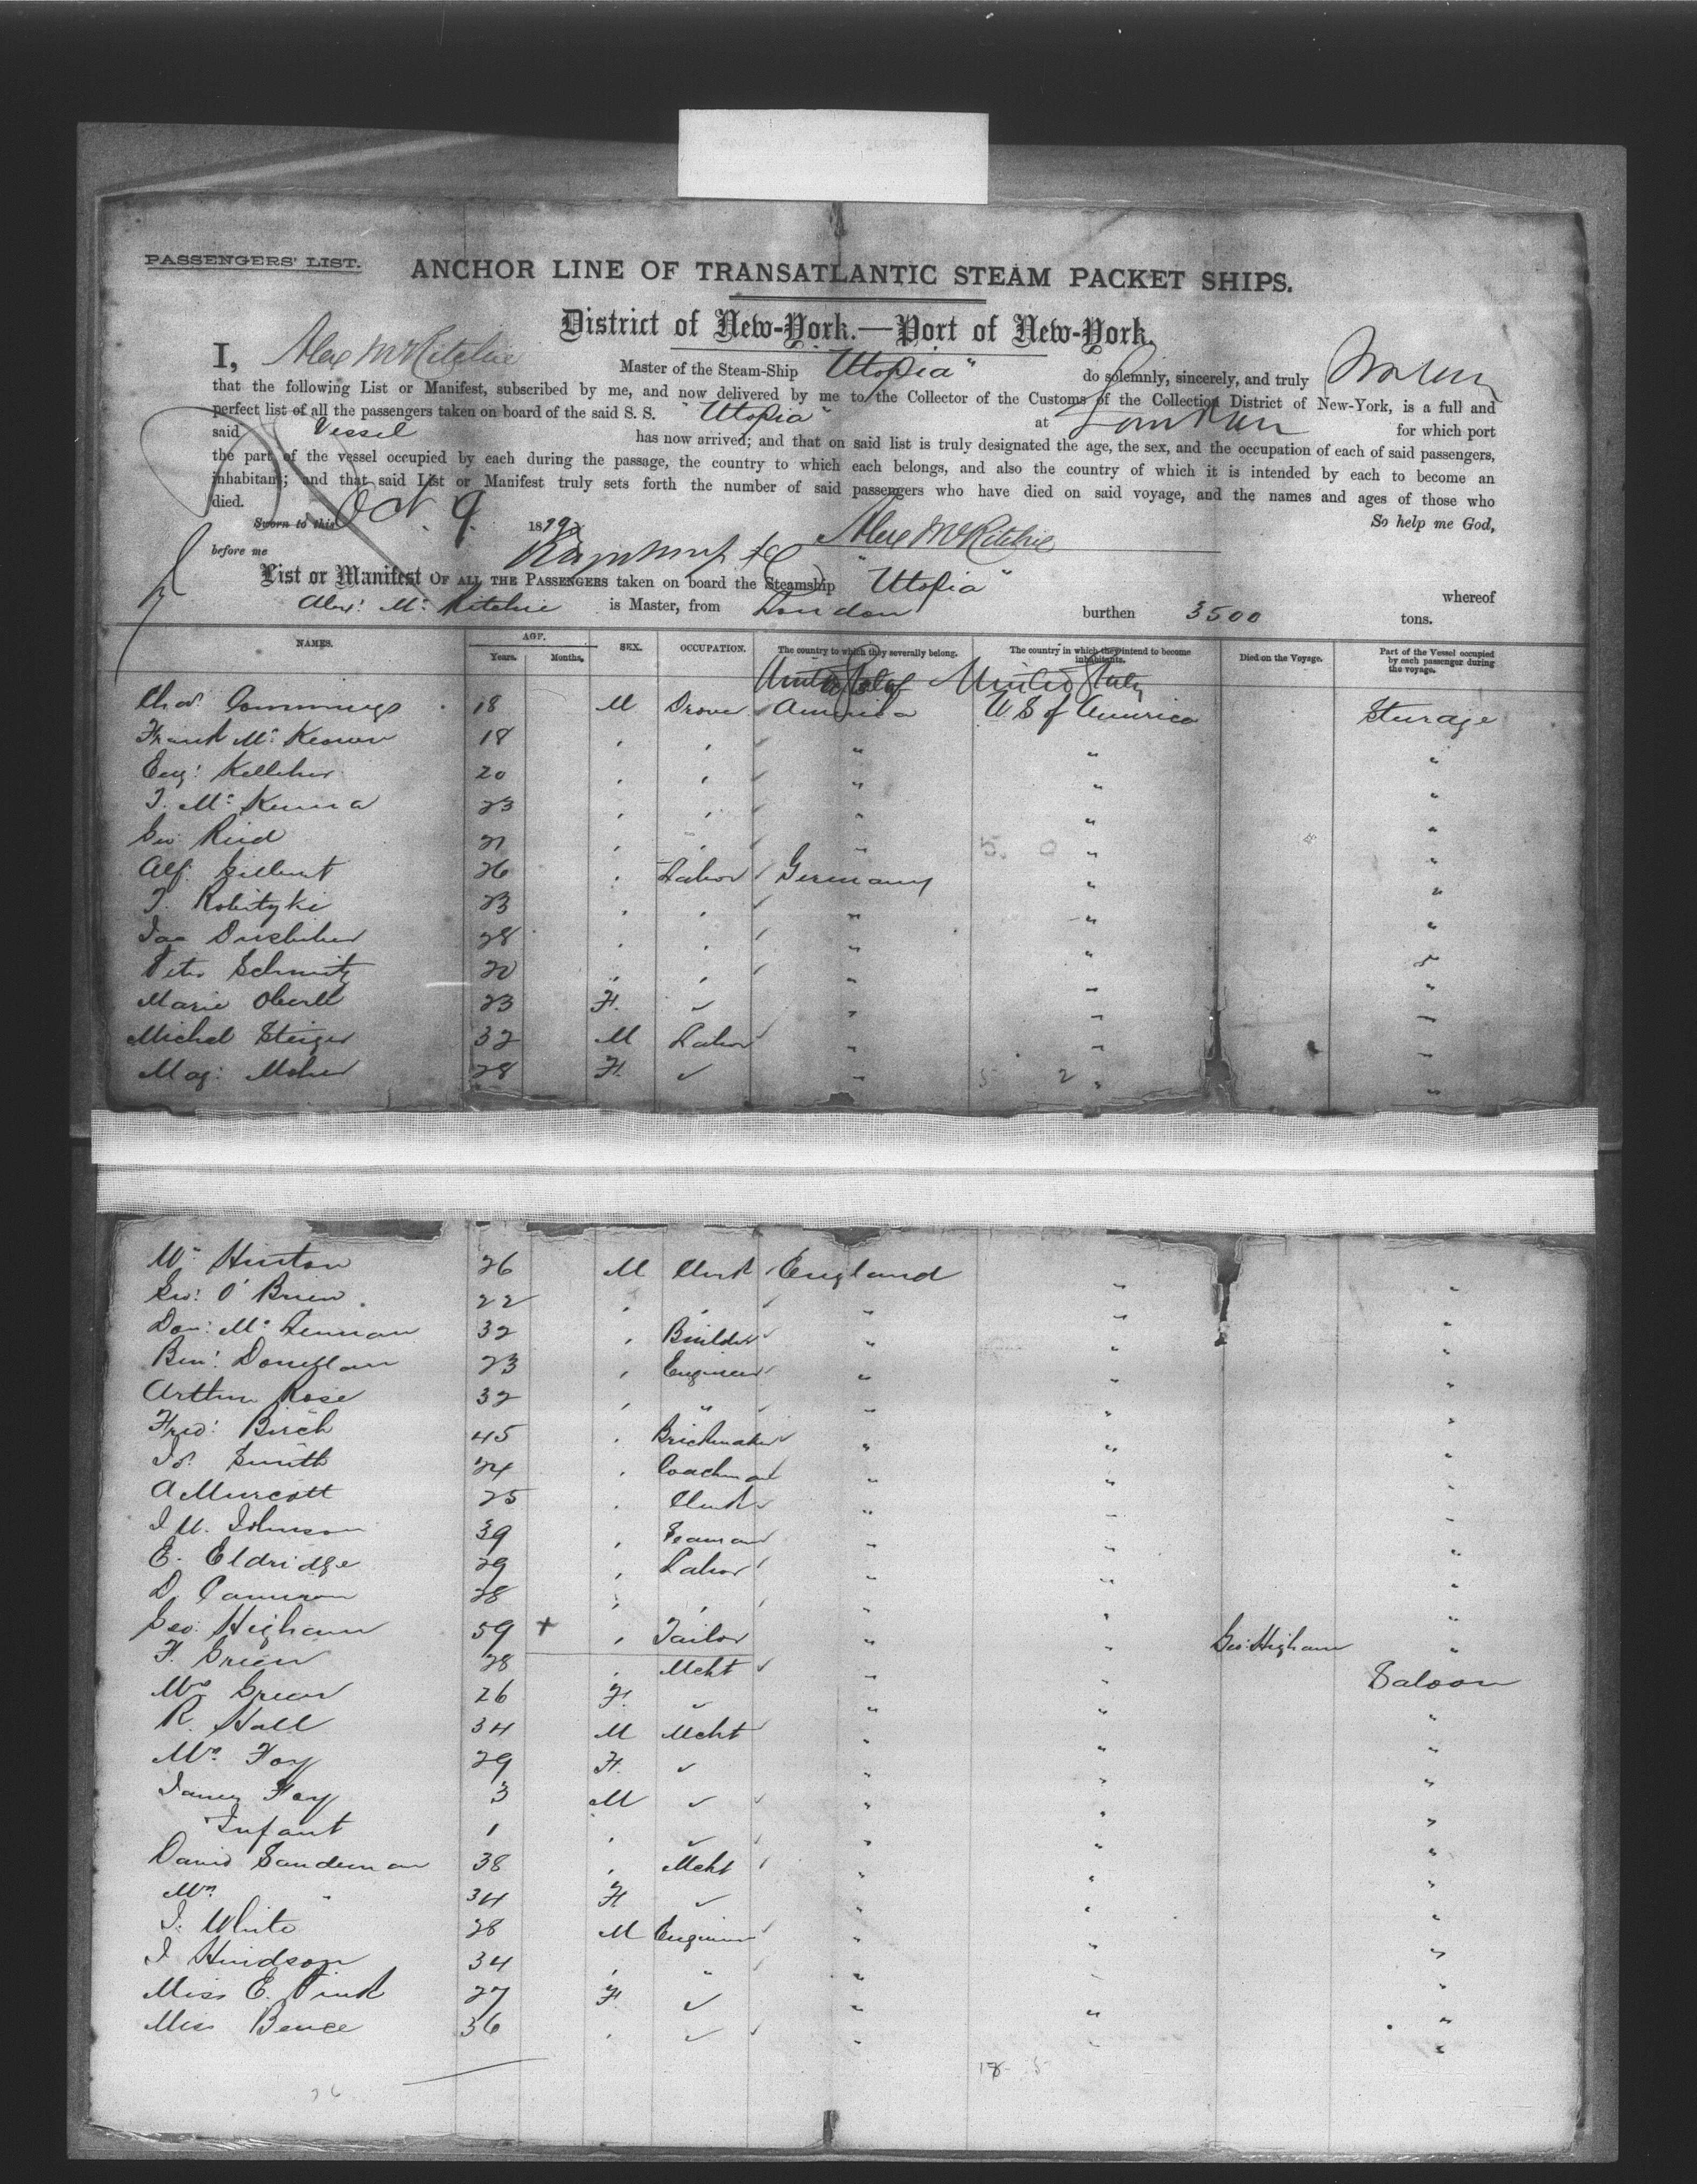 PASSENGERS' LIST.
ANCHOR LINE OF TRANSATLANTIC STEAM PACKET SHIPS.
District of New-York.—Port of New-York.
I, Alex McRitchie Master of the Steam-Ship "Utopia" do solemnly, sincerely, and truly swear
that the following List or Manifest, subscribed by me, and now delivered by me to the Collector of the Customs of the Collection District of New-York, is a full and
perfect list of all the passengers taken on board of the said S. S. "Utopia" at London for which port
said Vessel has now arrived; and that on said list is truly designated the age, the sex, and the occupation of each of said passengers,
the part of the vessel occupied by each during the passage, the country to which each belongs, and also the country of which it is intended by each to become an
inhabitant; and that said List or Manifest truly sets forth the number of said passengers who have died on said voyage, and the names and ages of those who
died. So help me God,
Sworn to this Oct. 9. 1879 Alex McRitchie
before me
List or Manifest OF ALL THE PASSENGERS taken on board the Steamship "Utopia" whereof
Alexr. Mc. Ritchie is Master, from London burthen 3500 tons.
NAMES. AGE. Years. Months. SEX. OCCUPATION. The country to which they severally belong. The country in which they intend to become inhabitants. Died on the Voyage. Part of the Vessel occupied by each passenger during the voyage.
Chas. Cummings 18 M Drover America U S of America Steerage
Frank Mc. Keown 18 " " " " "
Eug: Kelleher 20 " " " " "
T. Mc. Kenna 23 " " " " "
Geo Reid 21 " " " " "
Alf. Gilbert 26 " Labor Germany " "
T. Robityki 23 " " " " "
28 " " " " "
Peter Schmitz 20 " " " " "
Marie 23 F. " " "
Michel Steiger 32 M Labor " " "
Mag: 28 F. " " "
Wm Hinton 26 M Clerk England " "
Geo: O'Brien 22 " " " " "
Don: Mc. Lennan 32 " Builder " " "
Ben: 23 " Engineer " " "
Arthur Rose 32 " " " " "
Fred: Birch 45 " Brickmaker " " "
Js. Smith 24 " Coachman " " "
A Murcott 25 " Clerk " " "
J. W. Johnson 39 " Seaman " " "
E. Eldridge 29 " Labor " " "
D. Cameron 28 " " " " "
Geo. Higham 59 + " Tailor " " Geo: Higham "
F. Green 28 " Mcht " " Saloon
Mrs Green 26 F. " " "
R. Hall 34 M Mcht " " "
Mrs. Foy 29 F. " " "
James Foy 3 M " " "
Infant 1 " " " "
David Sandeman 38 " Mcht " " "
Mrs. " 34 F. " " "
J. White 28 M Engineer " " "
J Hindson 34 " " " " "
Miss E. Pink 27 F. " " "
Miss Bence 36 " " " "